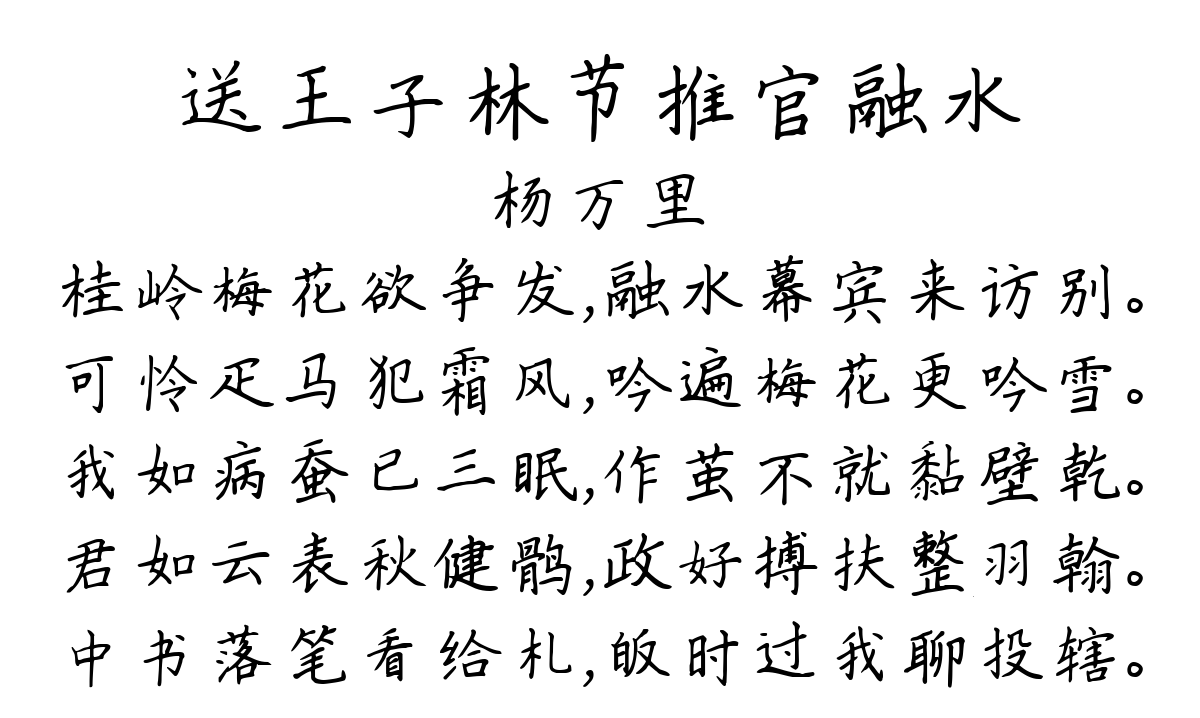 送王子林节推官融水
杨万里
桂岭梅花欲争发,融水幕宾来访别。
可怜疋马犯霜风,吟遍梅花更吟雪。
我如病蚕已三眠,作茧不就黏壁乾。
君如云表秋健鹘,政好搏扶整羽翰。
中书落笔看给札,皈时过我聊投辖。